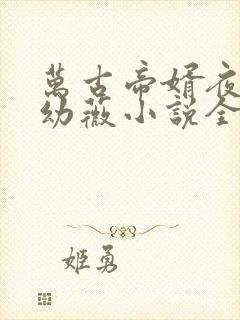 萬古帝婿夜
幼薇小説全
姬勇